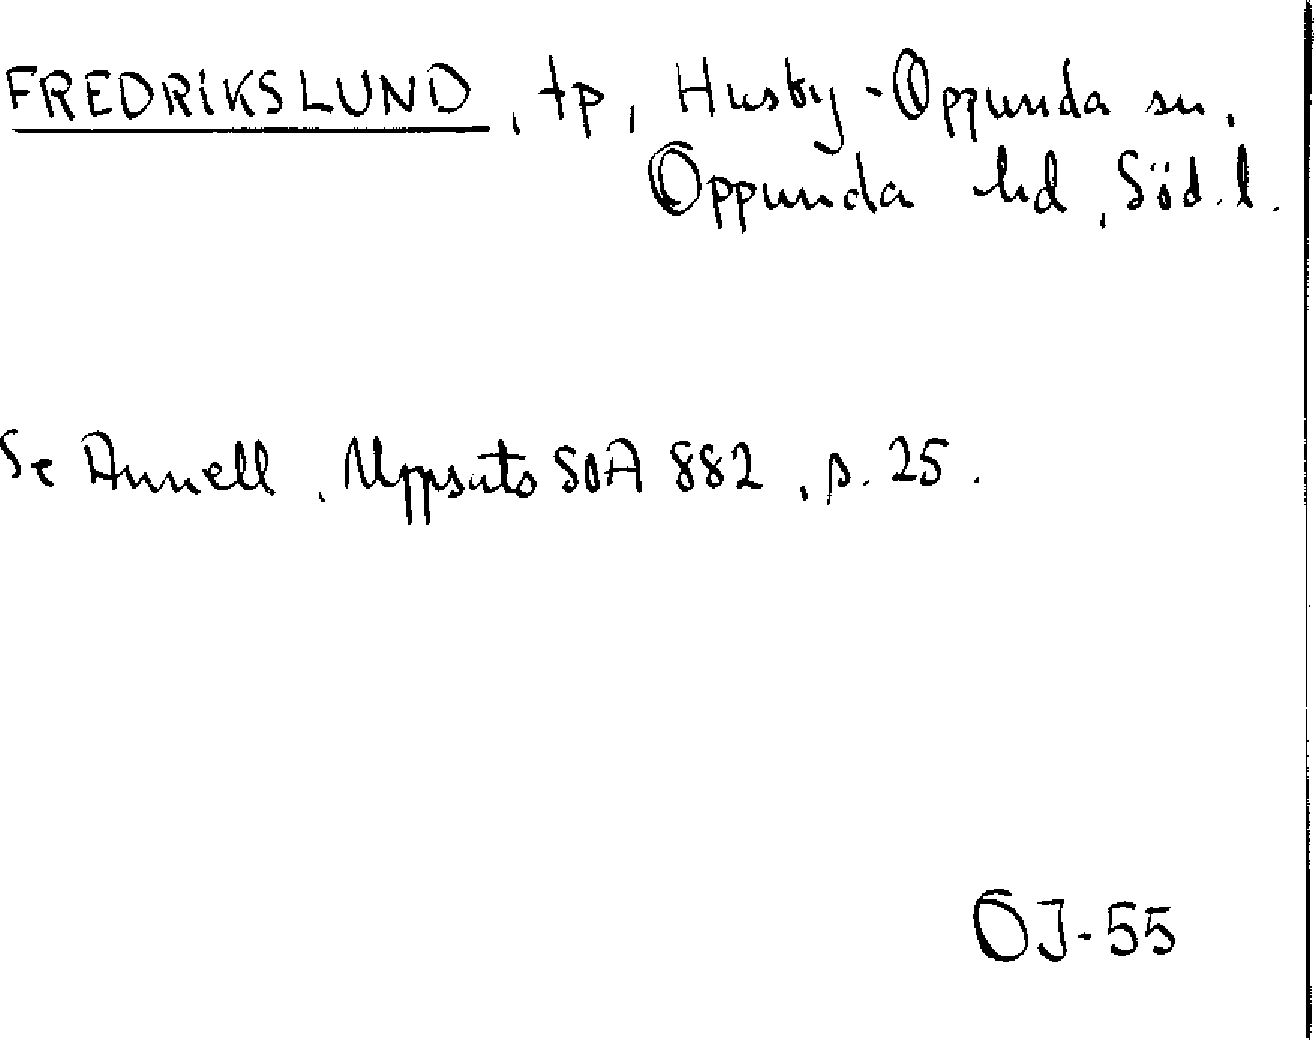 FREDRIKSLUND, tp, Husby-Oppunda sn,
Oppunda hd, Söd. l.
Se Annell, Uppsats SOA 882, s. 25.
OJ-55